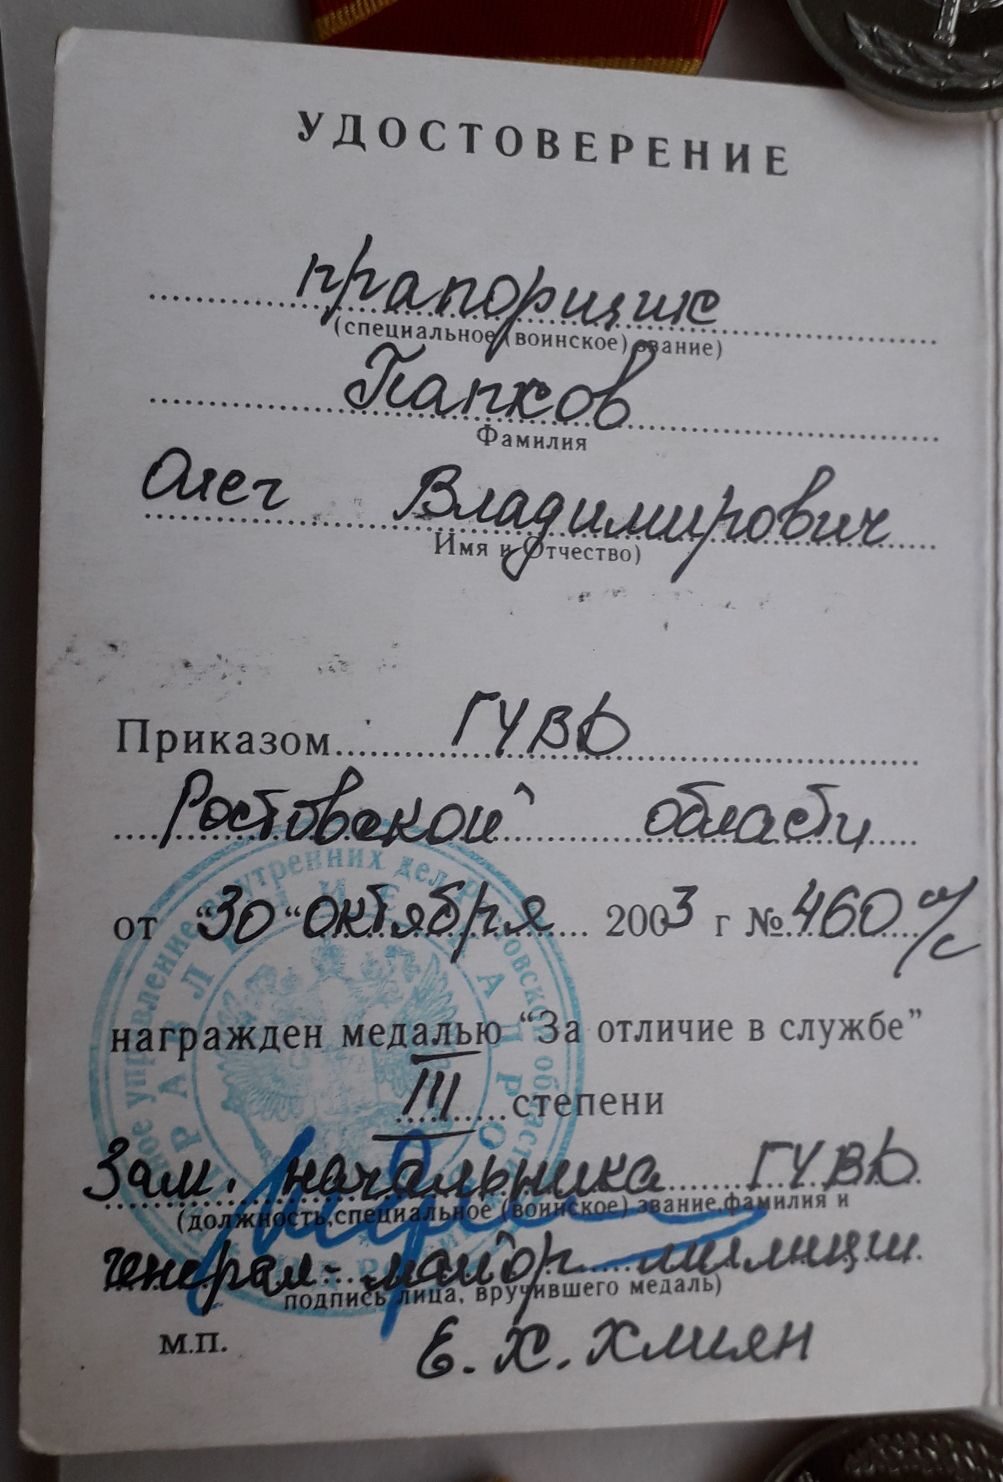 УДОСТОВЕРЕНИЕ
прапорщик
(специальное (воинское) звание)
Папков
Фамилия
Олег Владимирович
Имя и Отчество)
Приказом ГУВД
Ростовской области
от “30“ октября 2003 г № 460 л/с
награжден медалью “За отличие в службе”
III степени
Зам. начальника ГУВД
(должность, специальное (воинское) звание, фамилия и
генерал-майор милиции
подпись лица, вручившего медаль)
М.П.
Е. Х. Хмиян